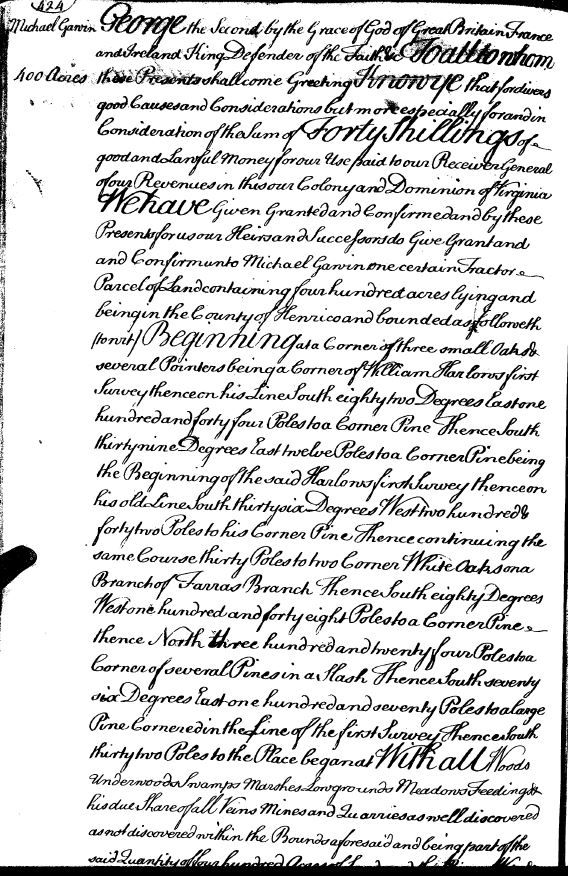 424
Michael Garvin George the Second by the Grace of God of Great Britain France
and Ireland King Defender of the Faith &c To all to whom
400 Acres these Presents shall come Greeting Know ye that for divers
good Causes and Considerations but more especially for and in
Consideration of the Sum of Forty Shillings of
good and Lawful Money for our Use paid to our Receiver General
of our Revenues in this our Colony and Dominion of Virginia
We have Given Granted and Confirmed and by these
Presents for us our Heirs and Successors do Give Grant and
and Confirm unto Michael Garvin one certain Tract or
Parcel of Land containing four hundred acres lying and
being in the County of Henrico and bounded as followeth
(to wit) Beginning at a Corner of three small Oaks &
several Pointers being a Corner of William Harlows first
Survey thence on his Line South eighty two Degrees East one
hundred and forty four Poles to a Corner Pine Thence South
thirty nine Degrees East twelve Poles to a Corner Pine being
the Beginning of the said Harlows first Survey thence on
his old Line South thirty six Degrees West two hundred &
forty two Poles to his Corner Pine Thence continuing the
same Course thirty Poles to two Corner White Oaks on a
Branch of Farras Branch Thence South eighty Degrees
West one hundred and forty eight Poles to a Corner Pine
thence North three hundred and twenty four Poles to a
Corner of several Pines in a Slash Thence South seventy
six Degrees East one hundred and seventy Poles to a large
Pine Cornered in the Line of the first Survey Thence South
thirty two Poles to the Place began at With all Woods
Underwoods Swamps Marshes Lowgrounds Meadows Feedings &
his due Share of all Veins Mines and Quarries as well discovered
as not discovered within the Bounds aforesaid and being part of the
said Quantity of four hundred Acres of Land and